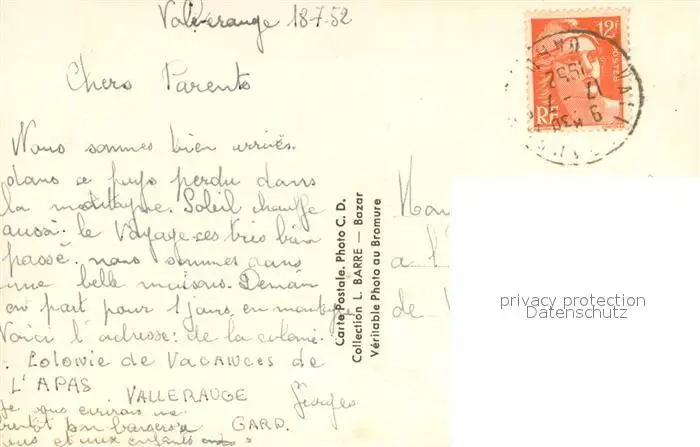 Valleraugue 18-7.52
Chers Parents
Nous sommes bien arrivés.
dans ce pays perdu dans
la montagne. Soleil chauffe
aussi. le Voyage ces très bien
passé. nous sommes dans
une belle maisons. Demain
en part pour 1 jours en montagne
Voici l'adresse: de la colonie.
Colonie de VACANCES de
L'APAS
VALLERAUGE
Georges
GARD.
Je
12F
POSTES
RF
1952
17 - 7
9 H30
Carte Postale. Photo C. D.
Collection L. BARRE — Bazar
Véritable Photo au Bromure
a l'
de
privacy protection
Datenschutz